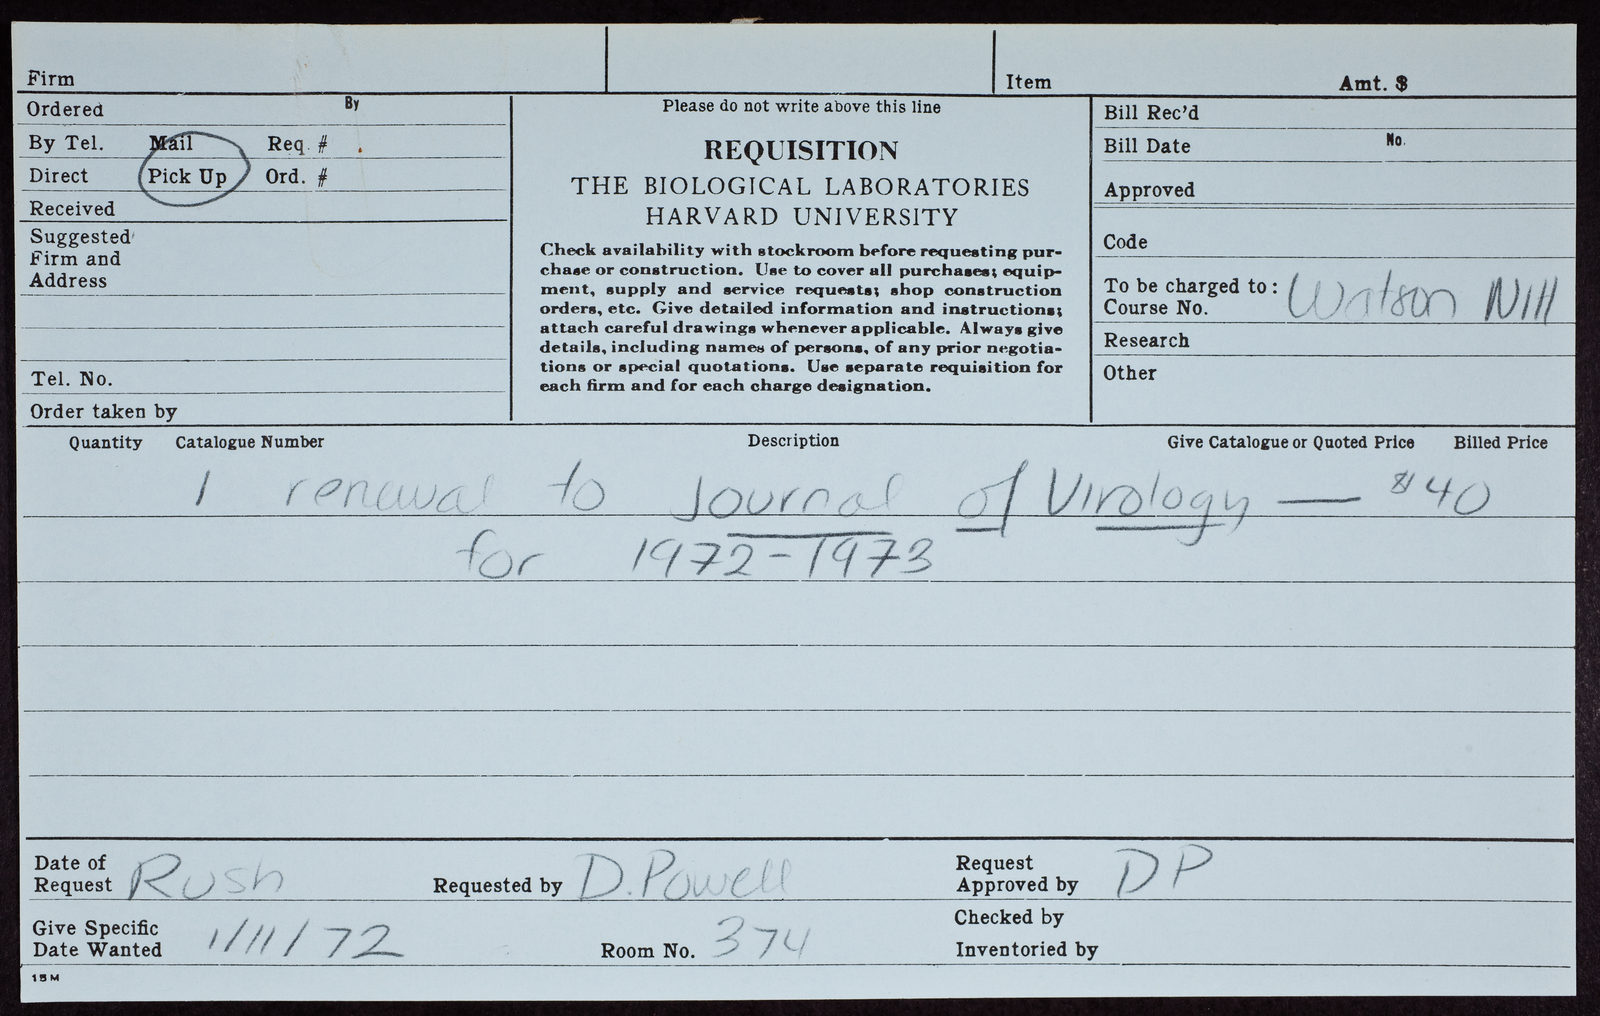 Firm
Item
Amt. $
Ordered By
By Tel. Mail Req. #
Direct Pick Up Ord. #
Received
Suggested
Firm and
Address
Tel. No.
Order taken by
Please do not write above this line
REQUISITION
THE BIOLOGICAL LABORATORIES
HARVARD UNIVERSITY
Check availability with stockroom before requesting pur-
chase or construction. Use to cover all purchases; equip-
ment, supply and service requests; shop construction
orders, etc. Give detailed information and instructions;
attach careful drawings whenever applicable. Always give
details, including names of persons, of any prior negotia-
tions or special quotations. Use separate requisition for
each firm and for each charge designation.
Bill Rec'd
Bill Date No.
Approved
Code
To be charged to: Watson
Course No.
Research
Other
Quantity Catalogue Number Description Give Catalogue or Quoted Price Billed Price
1 renewal to Journal of Virology — $40
for 1972-1973
Date of
Request Rush Requested by D. Powell
Request
Approved by DP
Give Specific
Date Wanted 1/11/72 Room No. 374
Checked by
Inventoried by
15M